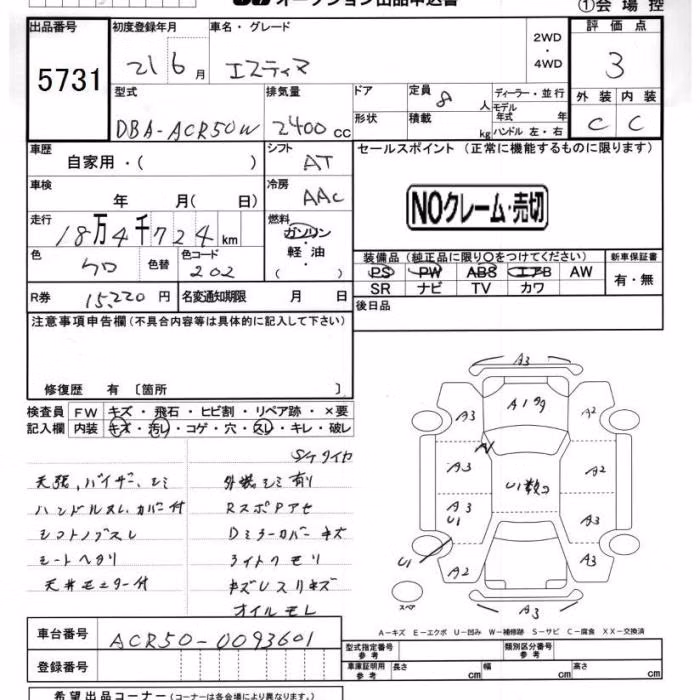 オークション出品申込書
①会場控
出品番号
5731
初度登録年月
21 6月
車名・グレード
エスティマ
2WD
・
4WD
評価点
3
型式
DBA-ACR50W
排気量
2400cc
ドア
形状
定員 8人
積載 kg
ディーラー・並行
モデル年式 年
ハンドル 左・右
外装 内装
C C
車歴
自家用・( )
シフト
AT
セールスポイント(正常に機能するものに限ります)
車検
年 月( 日)
冷房
AAC
NOクレーム・売切
走行
18万4千724km
燃料
ガソリン
・
軽油
( )
色
クロ
色替
色コード
202
装備品(純正品に限り〇をつけてください)
新車保証書
PS PW ABS エアB AW
SR ナビ TV カワ
有・無
R券 15,220円
名変通知期限 月 日
後日品
注意事項申告欄(不具合内容等は具体的に記入して下さい)
修復歴 有〔箇所 〕
検査員記入欄
FW キズ・飛石・ヒビ割・リペア跡・×要
内装 キズ・汚レ・コゲ・穴・スレ・キレ・破レ
S/Tタイヤ
天張、バイザー、シミ
ハンドルスレ、カバー付
シフトノブスレ
シートヘタリ
天井モニター付
外装シミ有り
RスポPアセ
Dミラーカバーキズ
ライトクモリ
キズUスリキズ
オイルモレ
A3
A3
A1
A2
A3
A2
A3
U1
U1数コ
A3
U1
A2
A3
A3
スペア
A-キズ E-エクボ U-凹み W-補修跡 S-サビ C-腐食 XX-交換済
車台番号
ACR50-0093601
登録番号
型式指定番号
参考
類別区分番号
参考
車庫証明用
参考
長さ cm
幅 cm
高さ cm
希望出品コーナー(コーナーは各会場により異なります。)